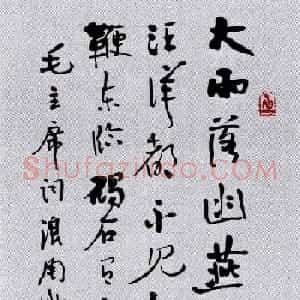 大雨落幽燕
汪洋都不见
鞭东临碣石有
毛主席词浪淘沙